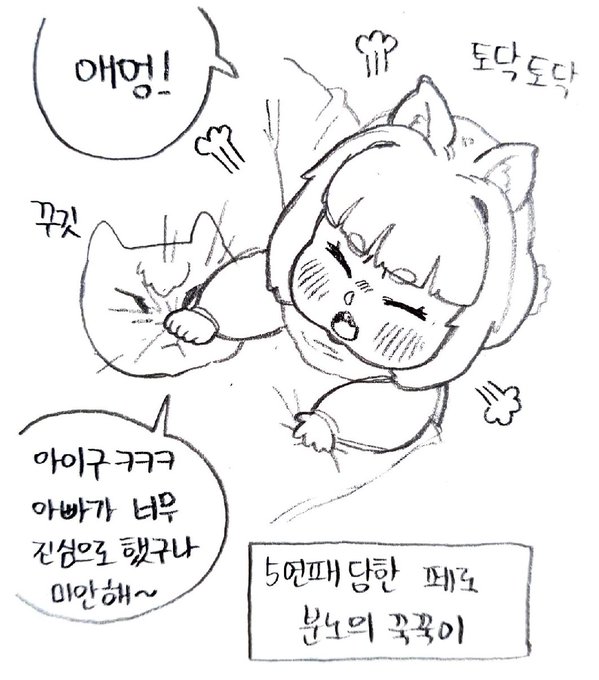 애멍!
토닥토닥
꾸깃
아이구ㅋㅋㅋ
아빠가 너무
진심으로 했구나
미안해~
5연패 당한 페로
분노의 꾹꾹이